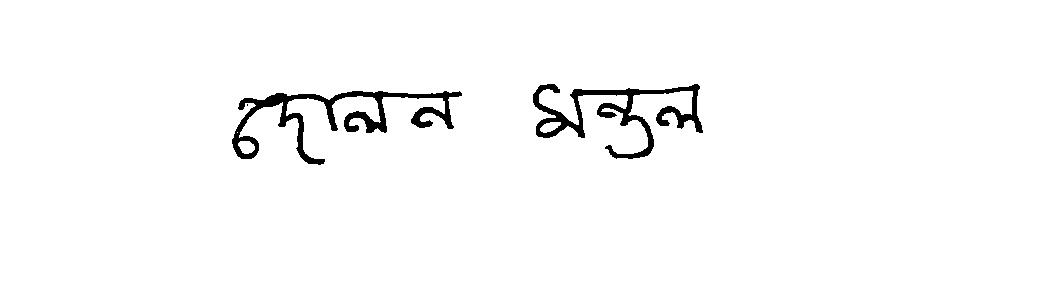 দোলন মন্ডল